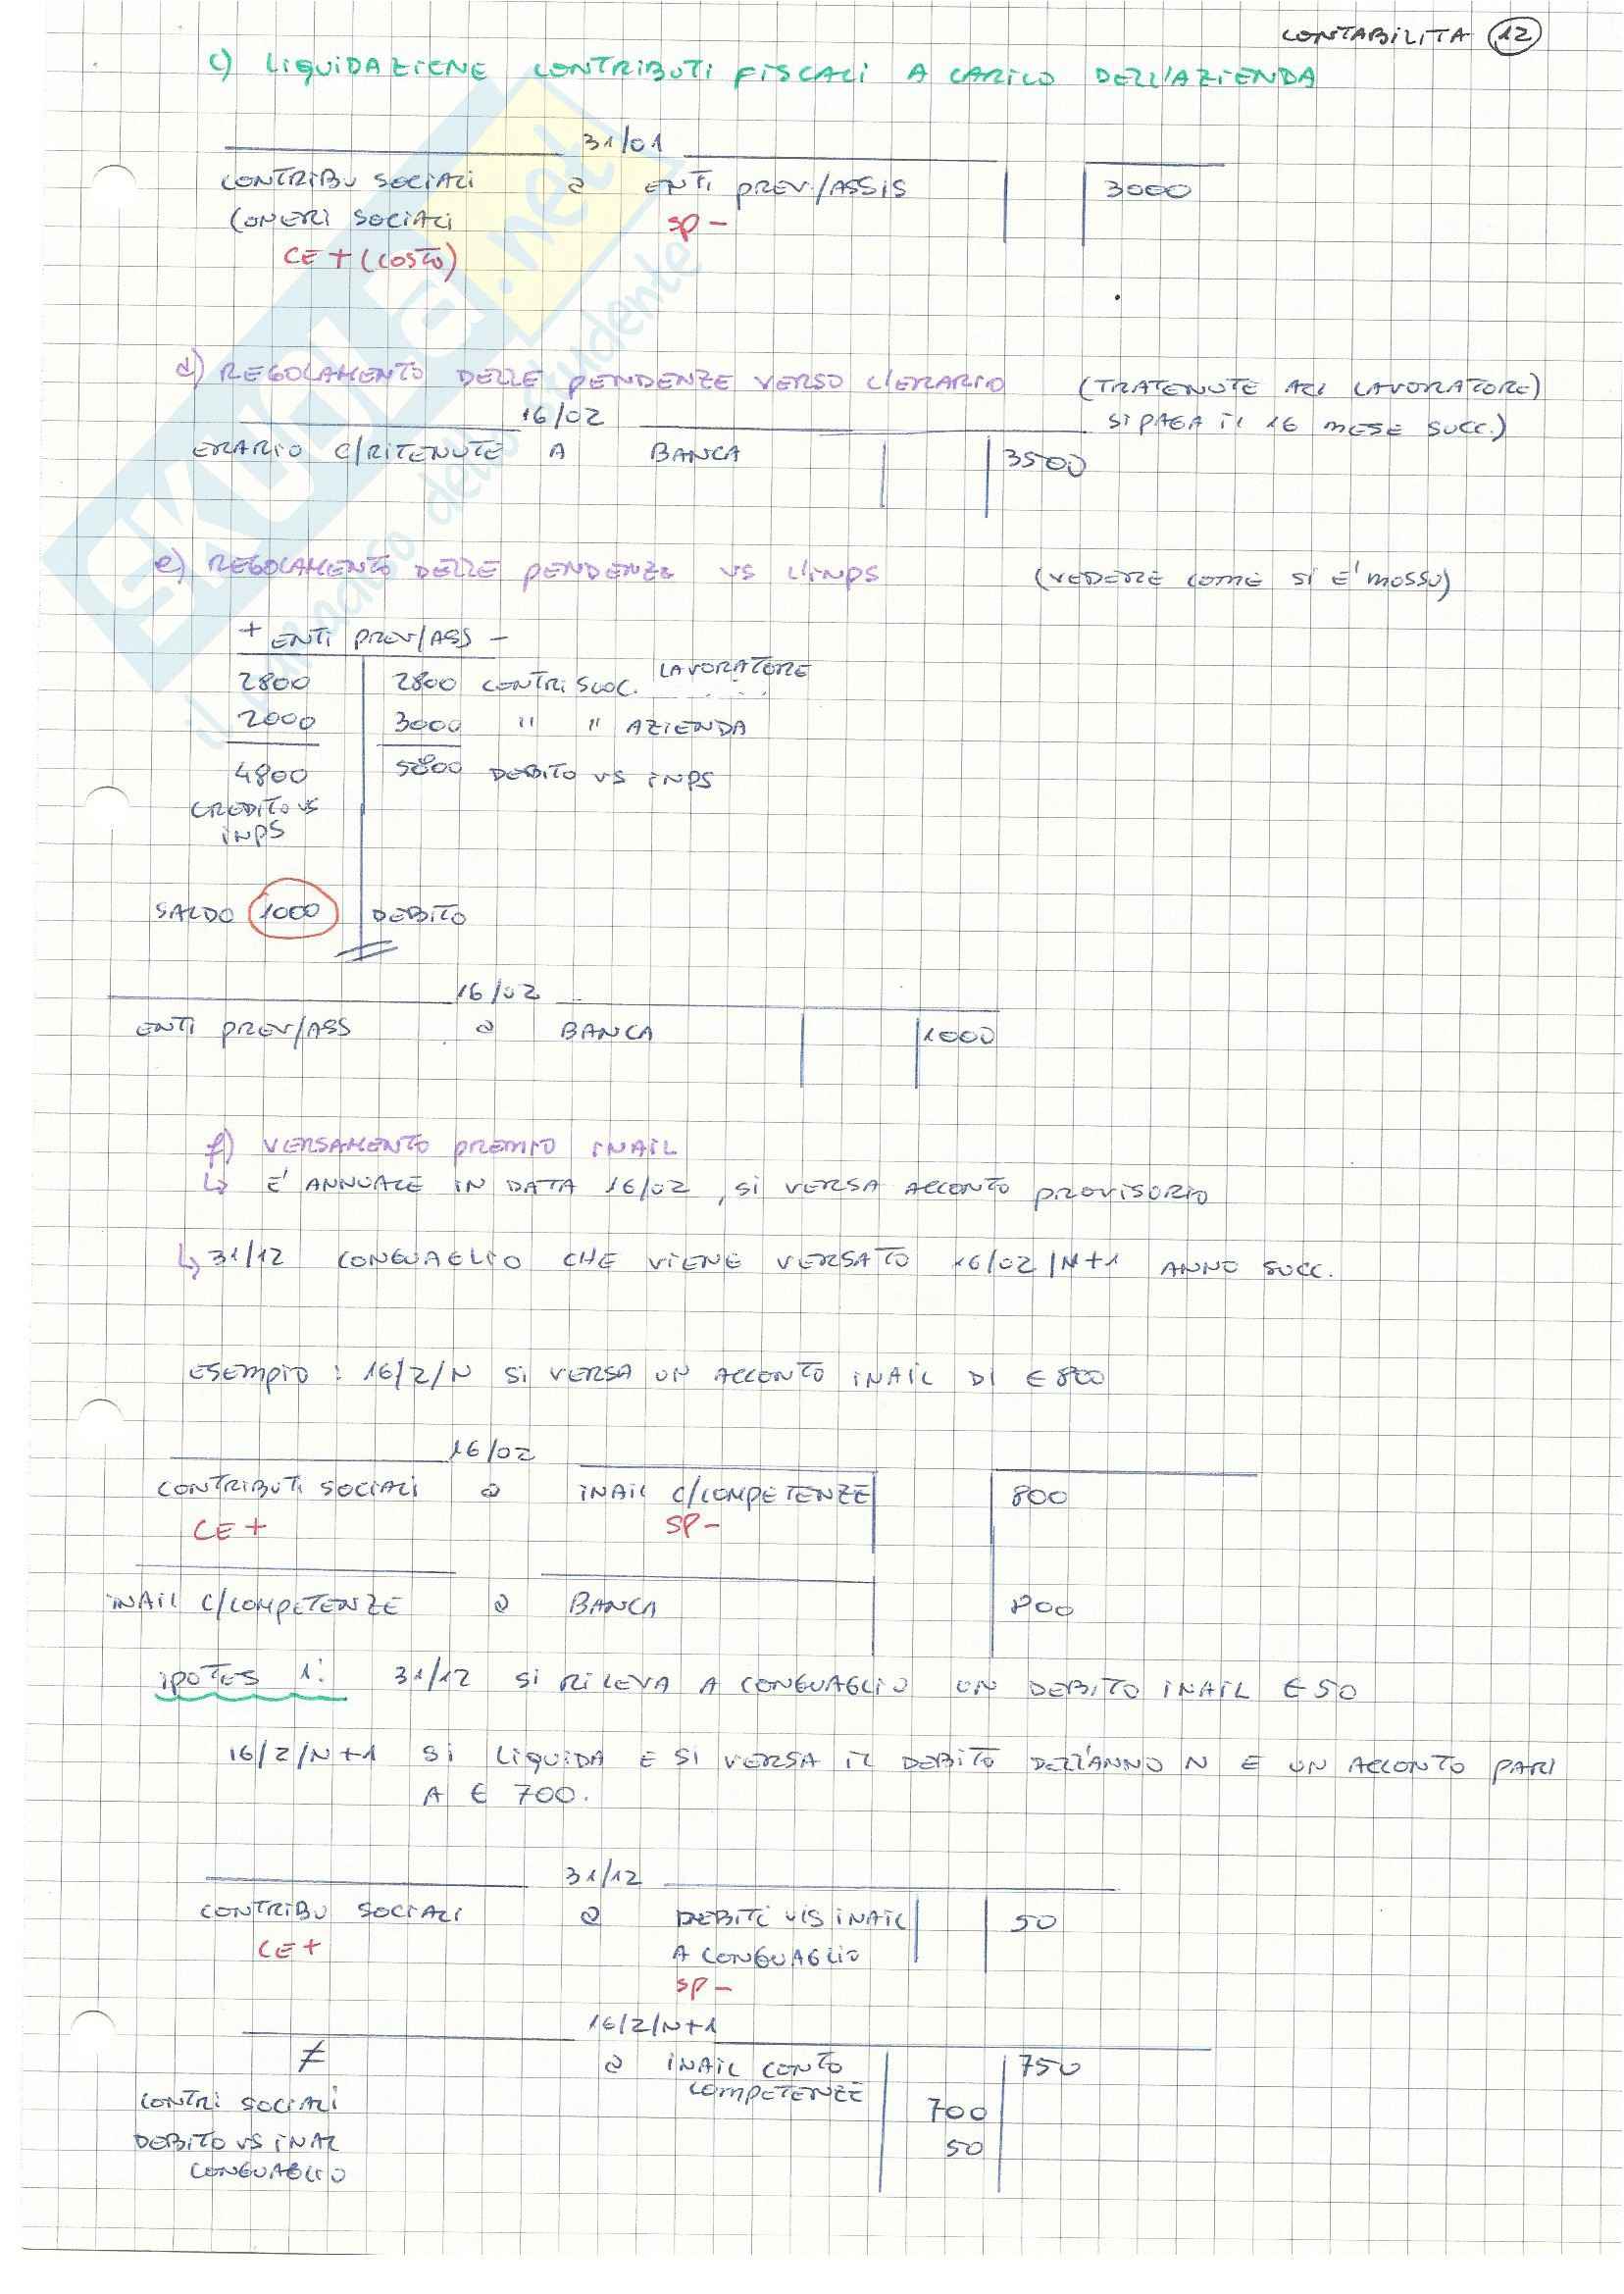 CONTABILITA 12
c) LIQUIDAZIENE CONTRIBUTI FISCALI A CARICO DELL'AZIENDA
31/01
CONTRIBU SOCIALI a ENTI PREV./ASSIS 3000
(ONERI SOCIALI SP -
CE + (COSTO)
d) REGOLAMENTO DELLE PENDENZE VERSO L'ERARIO (TRATENUTE AL LAVORATORE)
16/02 SI PAGA IL 16 MESE SUCC.)
ERARIO C/RITENUTE A BANCA 3500
e) REGOLAMENTO DELLE PENDENZE VS L'INPS (VEDERE COME SI E' MOSSO)
+ ENTI PREV/ASS -
2800 2800 CONTRI SOC. LAVORATORE
2000 3000 " " AZIENDA
4800 5800 DEBITO VS INPS
CREDITO VS
INPS
SALDO 1000 DEBITO
16/02
ENTI PREV/ASS a BANCA 1000
f) VERSAMENTO PREMIO INAIL
↳ E' ANNUALE IN DATA 16/02, SI VERSA ACCONTO PROVISORIO
↳ 31/12 CONGUAGLIO CHE VIENE VERSATO 16/02/N+1 ANNO SUCC.
ESEMPIO : 16/2/N SI VERSA UN ACCONTO INAIL DI € 800
16/02
CONTRIBUTI SOCIALI a INAIL C/COMPETENZE 800
CE + SP -
INAIL C/COMPETENZE a BANCA 800
IPOTES 1: 31/12 SI RILEVA A CONGUAGLIO UN DEBITO INAIL € 50
16/2/N+1 SI LIQUIDA E SI VERSA IL DEBITO DELL'ANNO N E UN ACCONTO PARI
A € 700.
31/12
CONTRIBU SOCIALI a DEBITI VS INAIL 50
CE + A CONGUAGLIO
SP -
16/2/N+1
≠ a INAIL CONTO 750
COMPETENZE
CONTRI SOCIALI 700
DEBITO VS INAL 50
CONGUAGLIO